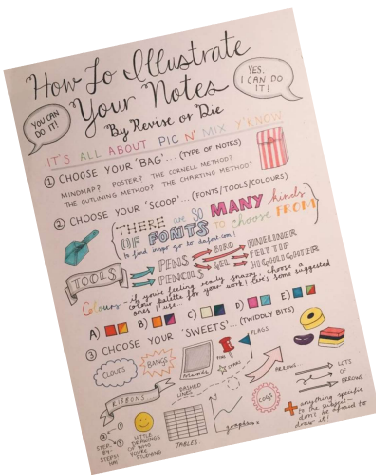 How To Illustrate
Your Notes
By Revise or Die
YOU CAN
DO IT!
YES.
I CAN DO
IT!
IT'S ALL ABOUT PIC N' MIX Y'KNOW
① CHOOSE YOUR 'BAG'... (TYPE OF NOTES)
MINDMAP? POSTER? THE CORNELL METHOD?
THE OUTLINING METHOD? THE CHARTING METHOD?
② CHOOSE YOUR 'SCOOP'... (FONTS/TOOLS/COLOURS)
THERE are SO MANY kinds
OF FONTS to choose FROM
to find inspo go to dafont.com!
TOOLS
PENS
BIRO
FINELINER
FELT TIP
PENCILS
GEL
HIGHLIGHTER
Colours - If you're feeling really snazzy, choose a
colour palette for your work! Here's some suggested
ones I use...
A)
B)
C)
D)
E)
③ CHOOSE YOUR 'SWEETS'... (TWIDDLY BITS)
CLOUDS
BANGS
PINS
STARS
FLAGS
ARROWS...
LOTS
OF
ARROWS
RIBBONS
DASHED
LINES
LOGOS
+ anything specific
to the subject—
don't be afraid to
draw it!
STEP
BY
STEPS
LITTLE
DRAWINGS
OF WHAT
YOU'RE
STUDYING
TABLES
graphs